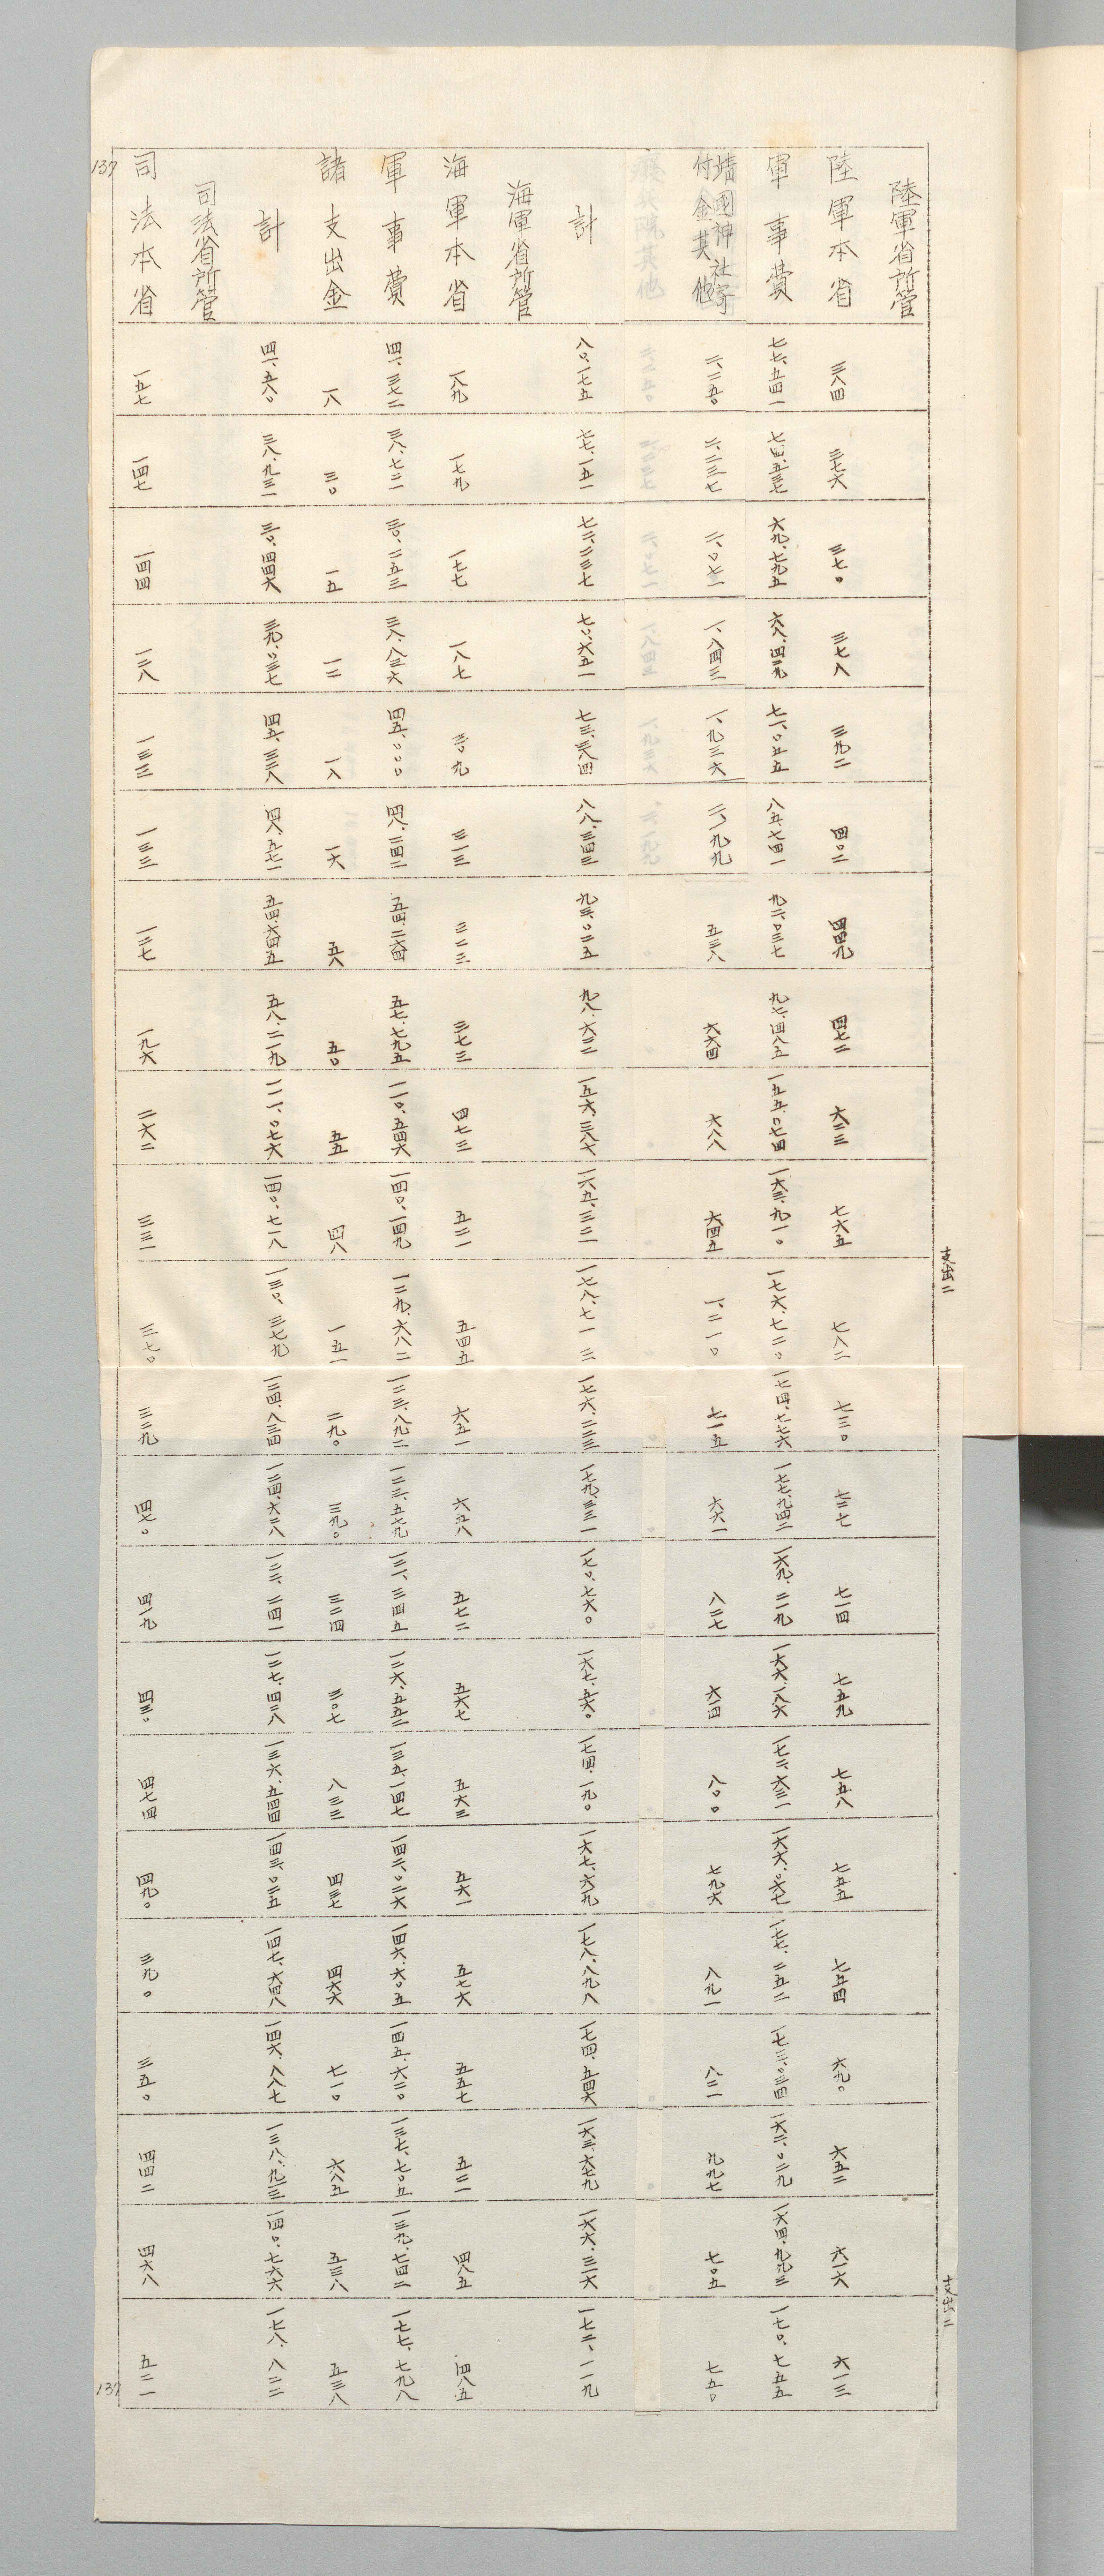 陸軍省所管
陸軍本省 三八四 三七六 三七〇 三七八 三九二 四〇二 四四九 四七二 六二三 七六五 七八二 七三〇 七三七 七一四 七五九 七五八 七五五 七五四 六九〇 六五二 六一六 六一三
軍事費 七七、五四一 七四、五三七 六九、七九五 六八、四二九 七一、〇五五 八五、七四一 九二、〇三七 九七、四八五 一五五、〇七四 一六三、九一〇 一七六、七二〇 一七四、七七六 一七七、九四二 一六九、二一九 一六六、一八六 一七二、六三一 一六六、〇六七 一七七、二五二 一七三、〇三四 一六二、〇二九 一六四、九九三 一七〇、七五五
靖國神社寄
付金其他 二、二五〇 二、二三七 二、〇七一 一、八四三 一、九三六 二、一九九 五三八 六六四 六八八 六四五 一、二一〇 七一五 六六一 八二七 六一四 八〇〇 七九六 八九一 八二一 九九七 七〇五 七五〇
計 八〇、一七五 七七、一五一 七二、二三七 七〇、六五一 七三、三八四 八八、三四三 九三、〇二五 九八、六二二 一五六、三八七 一六五、三二一 一七八、七一三 一七六、二二三 一七九、三三一 一七〇、七六〇 一六七、五六〇 一七四、一九〇 一六七、六一九 一七八、八九八 一七四、五四六 一六三、六七九 一六六、三一六 一七二、一一九
海軍省所管
海軍本省 一八九 一七九 一七七 一八七 三〇九 三一三 三二三 三七三 四七三 五二一 五四五 六五一 六五八 五七二 五六七 五六三 五六一 五七六 五五七 五二一 四八五 四八五
軍事費 四一、三七二 三八、七二一 三〇、二五三 三八、八三六 四五、〇〇〇 四八、二四二 五四、二六四 五七、七九五 一一〇、五四六 一四〇、一四九 一二九、六八二 一二三、八九二 一二三、五七九 一三一、三四五 一二六、五五二 一三五、一四七 一四二、〇二六 一四六、六〇五 一四五、六二〇 一三七、七〇五 一三九、七四二 一七七、七九八
諸支出金 一八 三〇 一五 一二 一八 一六 五八 五〇 五五 四八 一五一 二九〇 三九〇 三二四 三〇七 八三三 四三七 四六六 七一〇 六八五 五三八 五三八
計 四一、五八〇 三八、九三一 三〇、四四六 三九、〇三七 四五、三二八 四八、五七一 五四、六四五 五八、二一九 一一一、〇七六 一四〇、七一八 一三〇、三七九 一二四、八三四 一二四、六二八 一三二、二四一 一二七、四二八 一三六、五四四 一四三、〇二五 一四七、六四八 一四六、八八七 一三八、九一三 一四〇、七六六 一七八、八二二
司法省所管
司法本省 一五七 一四七 一四四 一二八 一三三 一三三 一二七 一九六 二六二 三三一 三七〇 三二九 四七〇 四一九 四三〇 四七四 四九〇 三九〇 三五〇 四四二 四六八 五二一
支出二
支出二
137
137